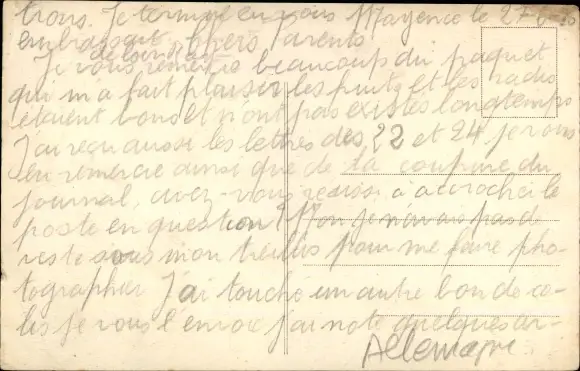 trons. Je termine en vous Mayence le 27-6-
embrassant chers parents
de loin
Je vous remercie beaucoup du paquet
qui m'a fait plaisir les fruits et les radis
étaient bons et n'ont pas existés longtemps
J'ai reçu aussi les lettres des 22 et 24 je vous
en remercie ainsi que de la coupure du
journal, avez-vous réussi à accrocher le
poste en question? Non je n'avais pas de
veste sous mon treillis pour me faire pho-
tographier J'ai touché un autre bon de co-
lis je vous l'envoie j'ai noté quelques
Allemagne